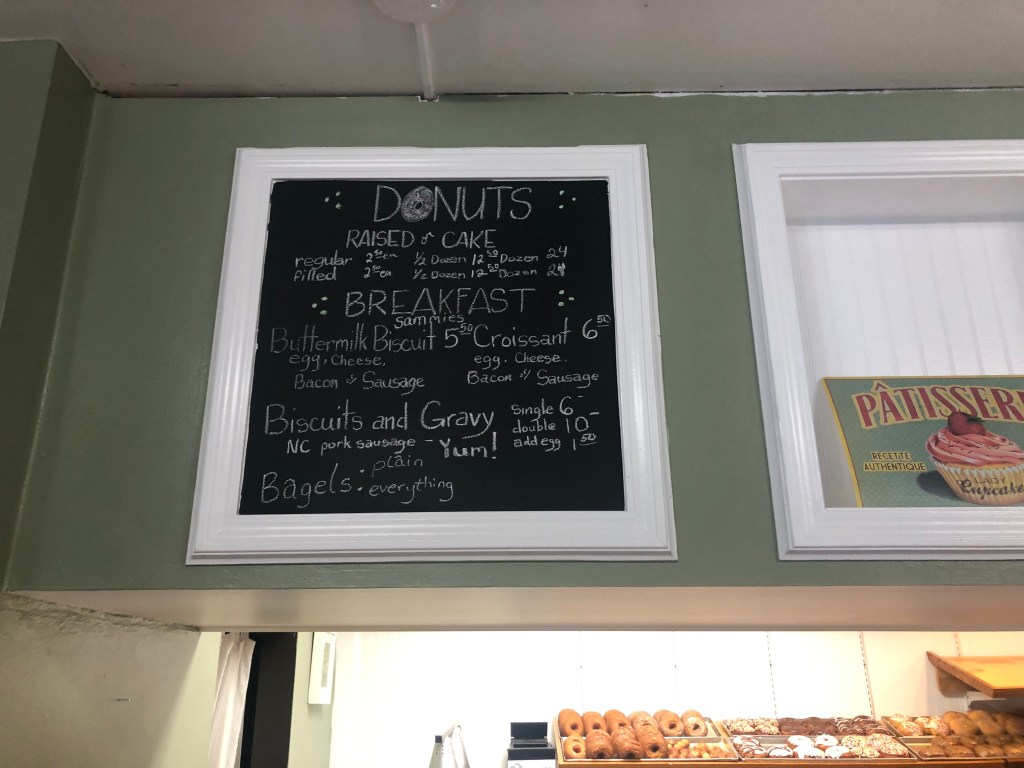 DONUTS
RAISED or CAKE
regular 2.50 ea 1/2 Dozen 12.50 Dozen 24
filled 2.50 ea 1/2 Dozen 12.50 Dozen 24
BREAKFAST
sammies
Buttermilk Biscuit 5.50 Croissant 6.50
egg, Cheese, egg. Cheese.
Bacon or Sausage Bacon or Sausage
Biscuits and Gravy single 6-
double 10-
NC pork sausage - Yum! add egg 1.50
Bagels • plain
• everything
PÂTISSERI
RECETTE
AUTHENTIQUE
LADY
Cupcake